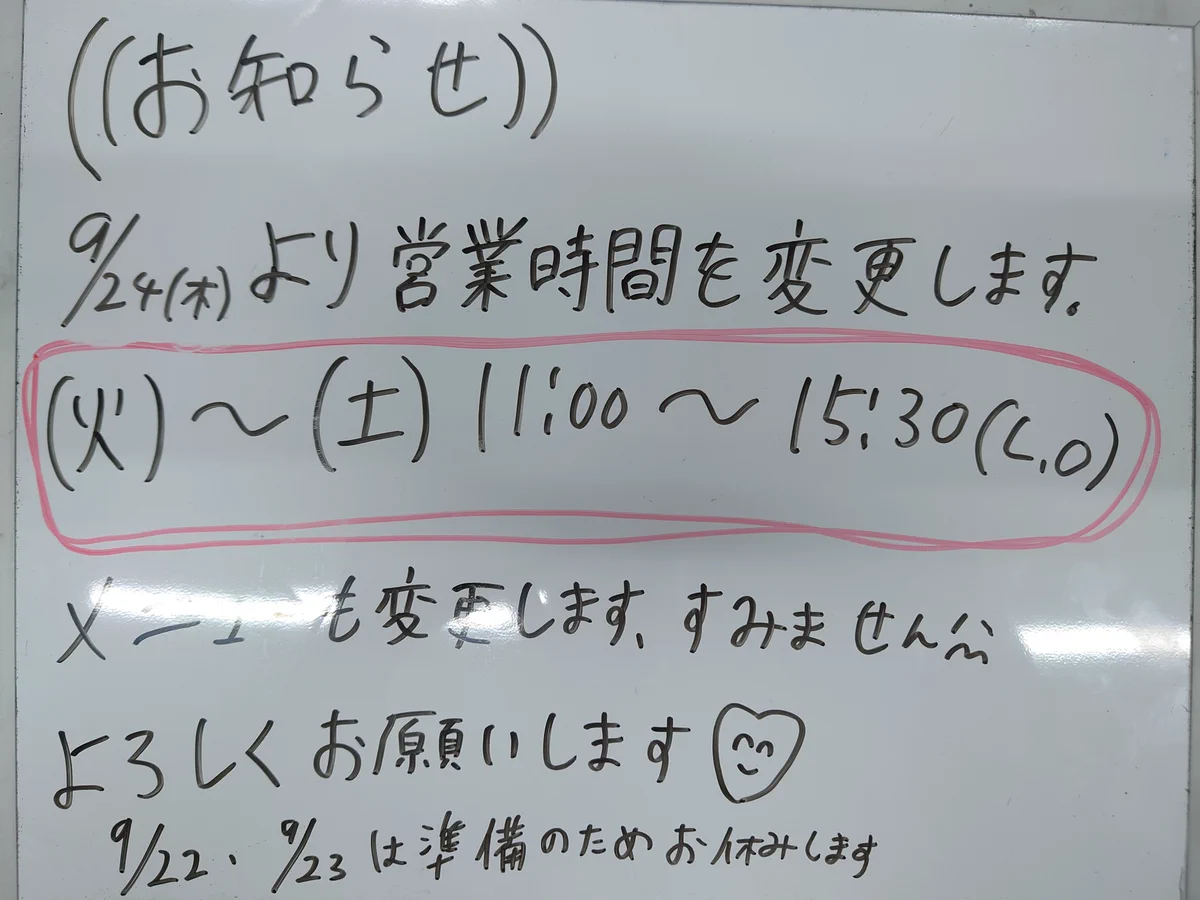 ((お知らせ))
9/24(木)より営業時間を変更します。
(火)〜(土) 11:00〜15:30(L.O)
も変更します、すみません
よろしくお願いします
9/22・9/23は準備のためお休みします